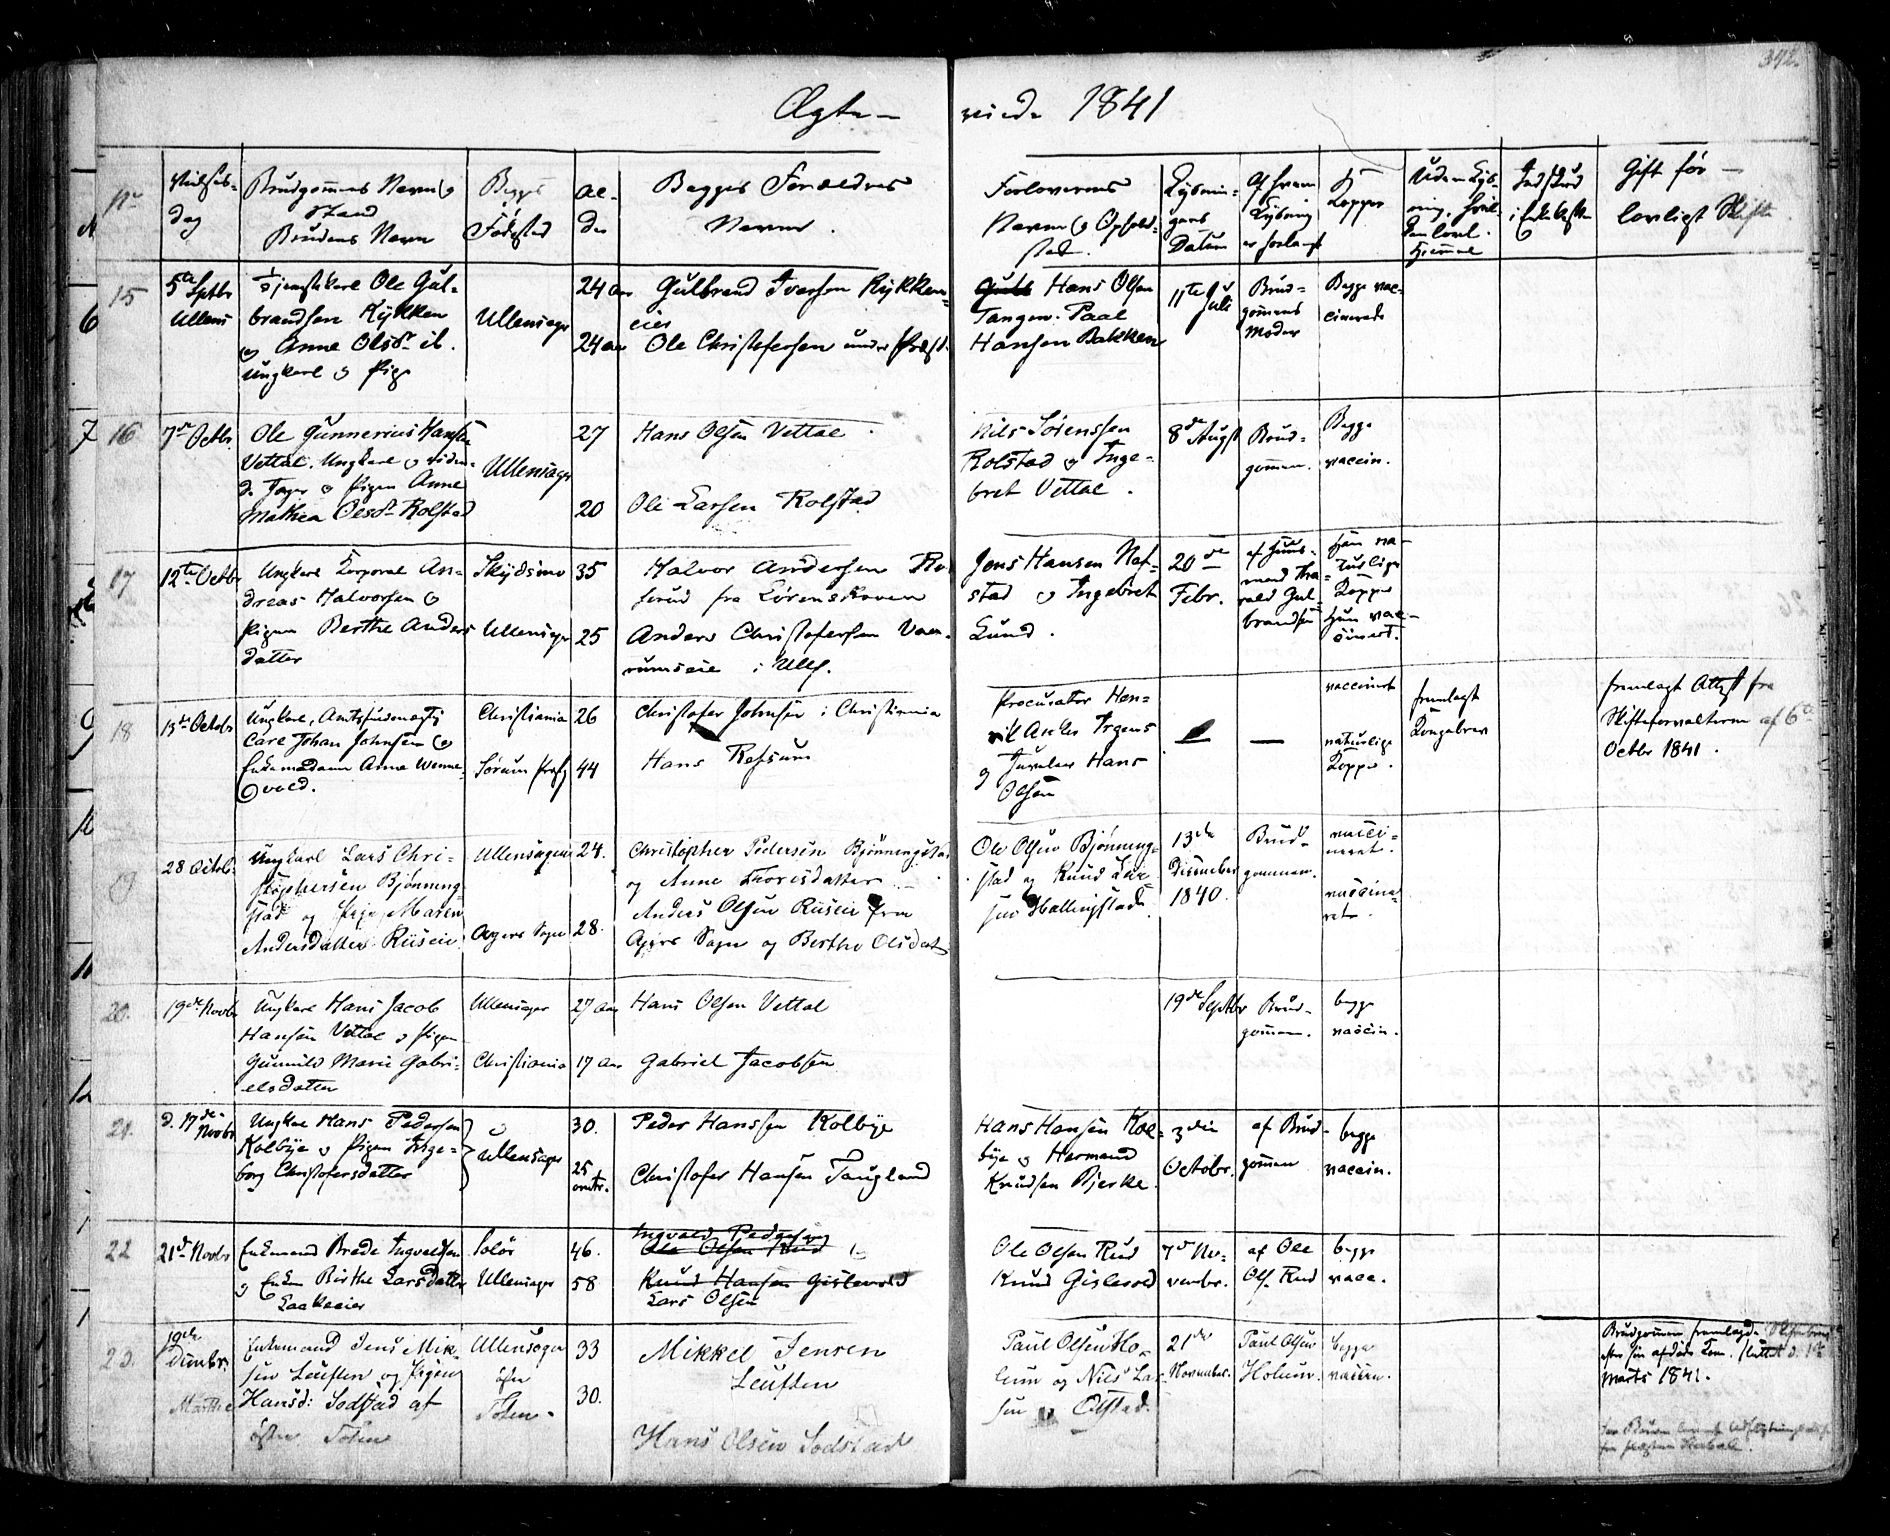 342.
Ægte-
viede 1841
No
Vielses-
dag
Brudgommens Navn og
Stand
Brudens Navn
Begges
Fødested
Al-
der
Begges Forældres
Navne.
Forlovernes
Navn og Opholds-
sted.
Lysnin-
gens
Datum
Af hvem
Lysning
er forlangt
Kopper
Uden Lys-
ning,
Hjemmel
Indskud
i Enkekassen
Gift før —
lovligt Skifte
15
5te Septbr
Ullens
Tjenestekarl Ole Gul-
brandsen Kykken
og Anne Olsdr ib.
Ungkarl og Pige
Ullensager
24 Aar
24 Aar
Gulbrand Iversen Kykken-
eier
Ole Christofersen under Præst.
Hans Olsen
Tangen. Paal
Hansen Bakken
11te Juli
Brud-
gommens
Moder
Begge vac-
cinerede
16
7de Octbr
Ole Gunnerius Hansen
Vettal. Ungkarl og
Jæger og Pigen Anne
Mathea Olsdr Rolstad
Ullensager
27
20
Hans Olsen Vettal
Ole Larsen Rolstad
Nils Sørenssen
Rolstad og Inge-
bret Vettal.
8de Augst
Brud-
gommen.
Begge
vaccin.
17
12te Octbr
Ungkarl Korporal An-
dreas Halvorsen og
Pigen Berthe Anders
datter
Skydsmo
Ullensager
35
25
Halvor Andersen
fra Lørenskoven
Anders Christofersen
i Ulls.
Jens Hansen Naf-
stad og Ingebret
Lund.
20de
Febr.
af Huus-
mand
Gul-
brandsen
Han na-
turlige
Kopper
Hun vac-
cinert.
18
15de Octobr
Ungkarl, Amtsfuldmægtig
Carl Johan Johnsen og
Enkemadame Anna Wenne-
vold.
Christiania
Sørum Præstg
26
44
Christofer Johnsen i Christiania
Hans Refsum
Procurator Hen-
rik Anker Irgens
og Juveleer Hans
Olsen
—
—
vaccineret
naturlige
Kopper.
fremlagt
Kongebrev
fremlagt Attest fra
Skifteforvalteren af 6te
Octbr 1841.
19
28 Octob:
Ungkarl Lars Chri-
stophersen Bjønning-
stad og Pige Maren
Andersdatter Riiseie
Ullensager
Agers Sogn
24.
28.
Christopher Pedersen Bjønningstad
og Anne Thoresdatter
Anders Olsen Riiseie fra
Agers Sogn og Berthe Olsdat
Ole Olsen Bjønning-
stad og Knud Lar
sen Hallingstad.
13de
December
1840.
Brud-
gommen.
vacci-
neret.
vaccine-
ret.
20.
19de Novbr
Ungkarl Hans Jacob
Hansen Vettal og Pigen
Gunnild Marie Gabri-
elsdatter
Ullensager
Christiania
27 Aar
17 Aar
Hans Olsen Vettal
Gabriel Jacobsen
19de Septbr
Brud-
gommen.
begge
vaccin.
21.
d. 17de
Novbr
Ungkarl Hans Pedersen
Kolbye og Pigen Inge-
borg Christofersdatter
Ullensager
30.
25
omtr.
Peder Hanssen Kolbye
Christofer Hansen Taugland
Hans Hansen Kol-
bye og Hermand
Knudsen Bjerke.
3die
Octobr.
af Brud-
gommen
begge
vaccin.
22
21de Novbr
Enkemand Brede Ingvaldsen
og Enke Birthe Larsdatter
Laakeeier
Solør
Ullensager
46.
58
Ingvald Pedersen
Ole Olsen Rud
Knud Hansen Gislevold
Lars Olsen
Ole Olsen Rud
Knud Gislevold
7de No-
vembr.
af Ole
Ols. Rud
begge
vacc.
23.
19de
Decmbr.
Enkemand Jens Mik-
sen Leuften og Pigen
Marthe Hansd: Sodstad af
østre Toten
Ullensager
østre
Toten.
33
30.
Mikkel Jensen
Leuften
Hans Olsen Sodstad
Paul Olsen Ho-
lum og Niels Lar-
sen Olstad.
21de
November.
Paul Olsen
Holum.
begge
vaccin.
Brudgommen fremlagde
efter sin afdøde Kone. sluttet d. 1te
Marts 1841.